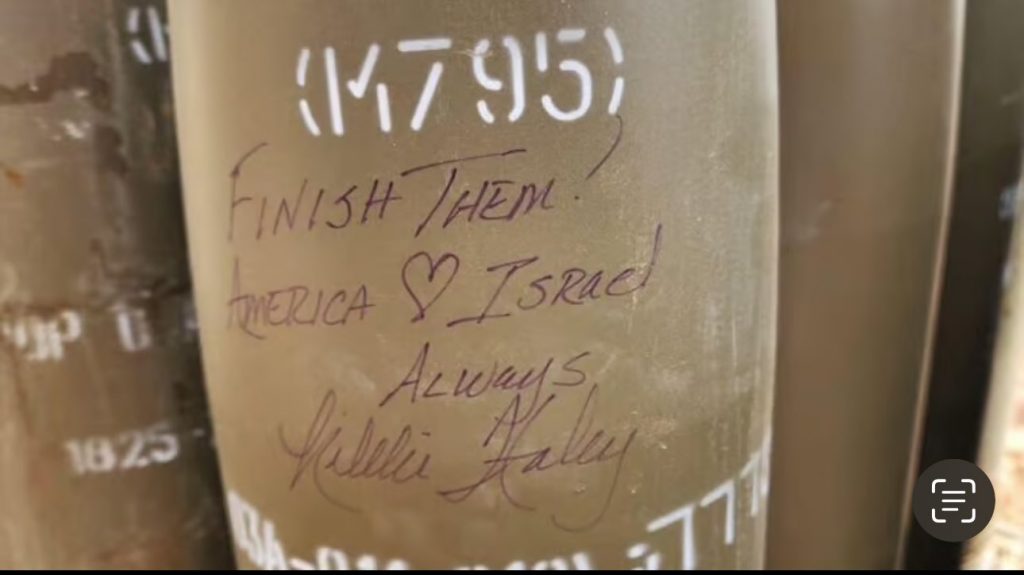 (M795)
FINISH THEM!
AMERICA ♡ ISRAEL
ALWAYS
Nikki Haley
1825